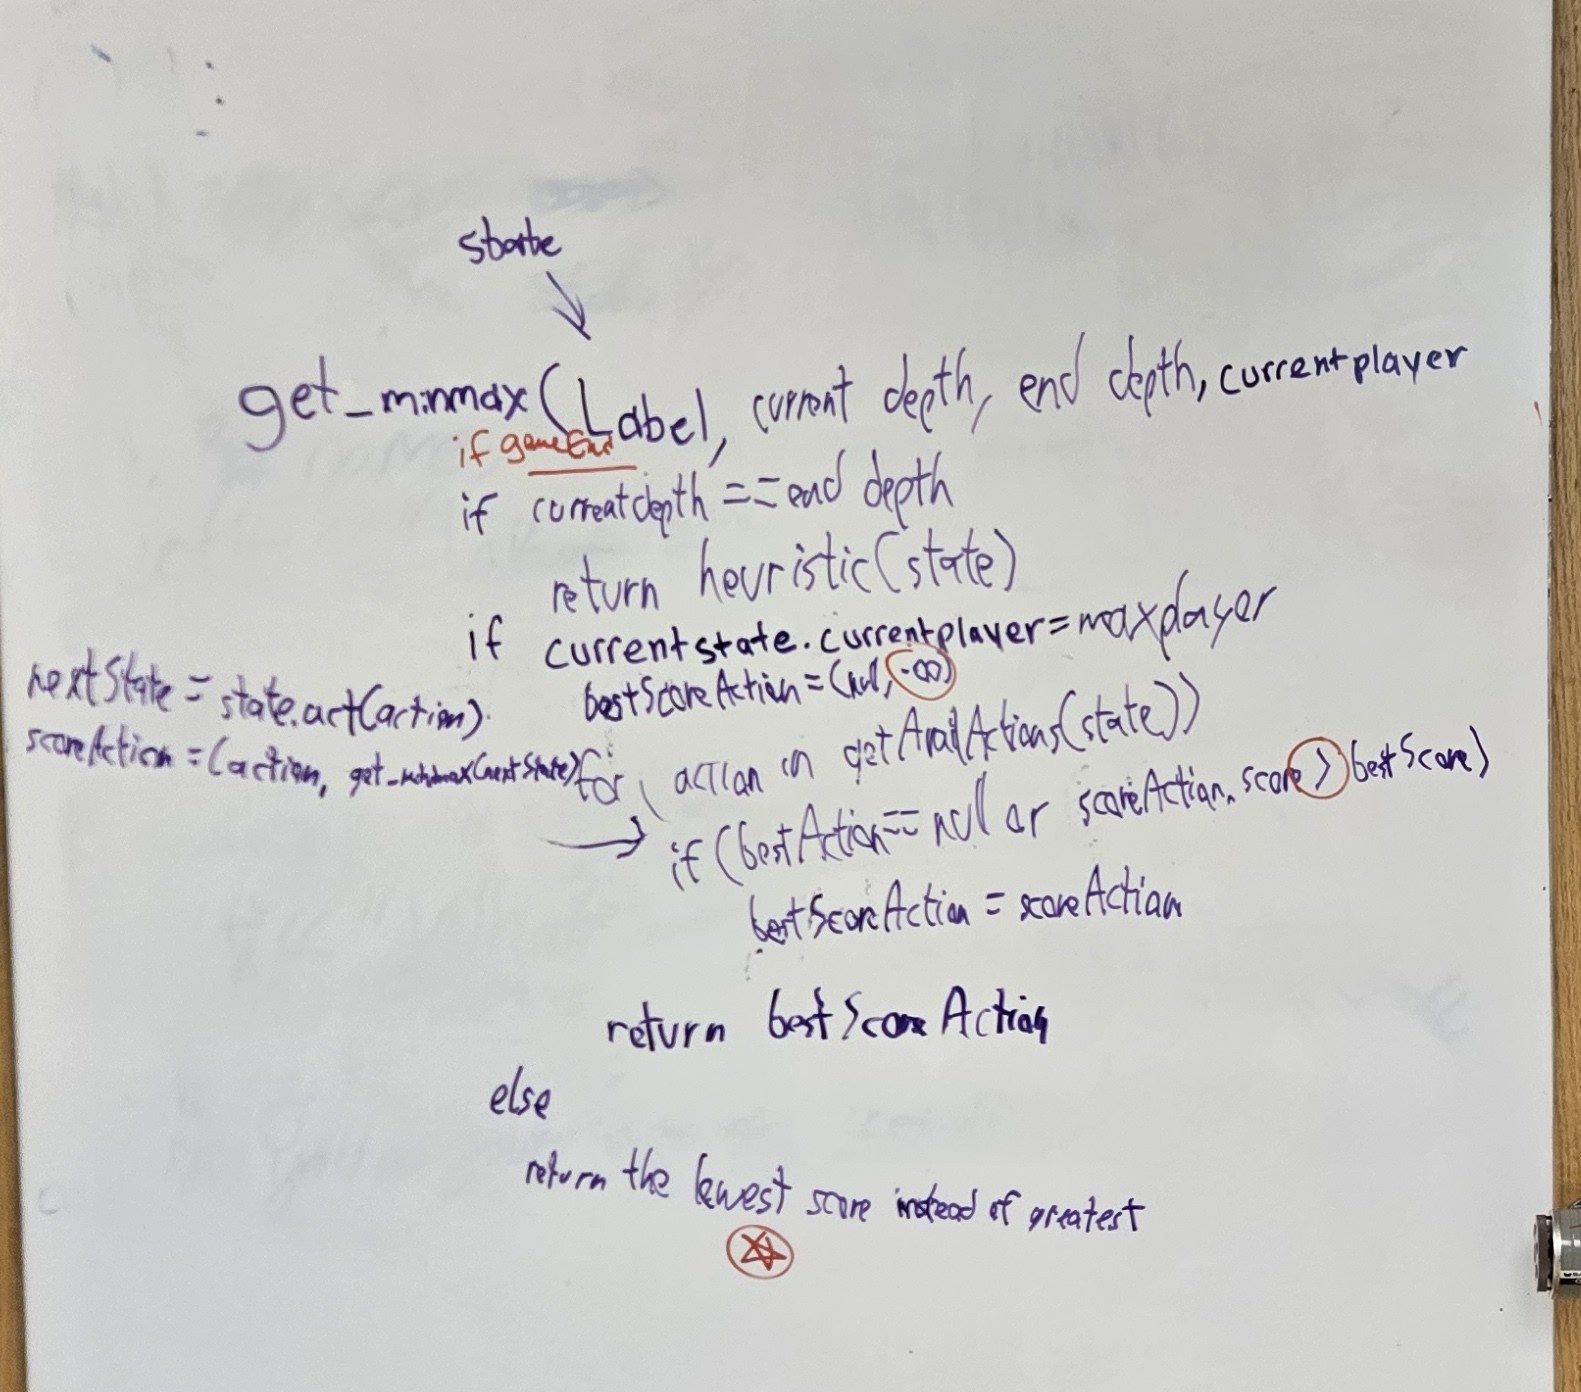 state
get_minmax(Label, current depth, end depth, currentplayer
if gameEnd
if currentdepth == end depth
return heuristic(state)
if currentstate.currentplayer=maxplayer
bestScoreAction=(null, -∞)
nextState = state.act(action).
scoreAction = (action, get_minmax(nextState)
for action in getAvailActions(state))
if (bestAction== null or scoreAction.score > bestScore)
bestScoreAction = scoreAction
return bestScoreAction
else
return the lowest score instead of greatest